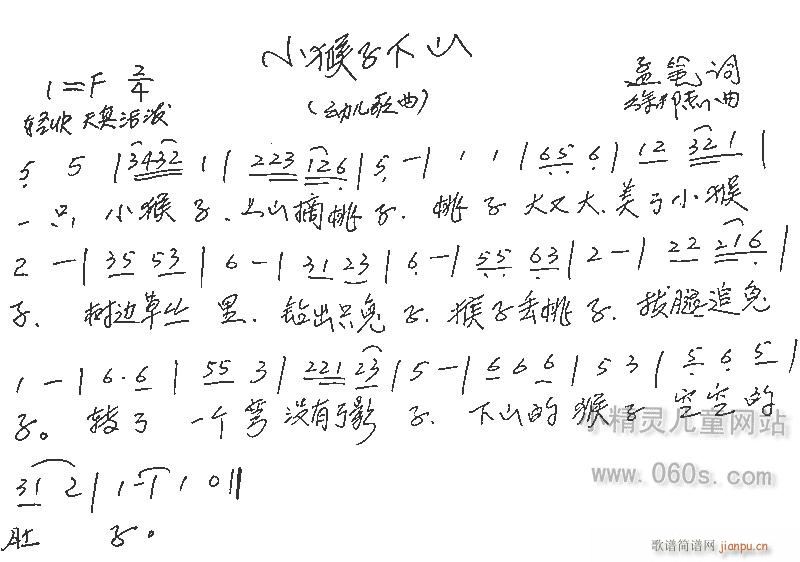 小猴子下山
1=F 2/4
孟 笔 词
(幼儿歌曲)
轻快 天真活泼
曲
5 5 | 3432 1 | 223 126 | 5 - | 1 1 | 65 6 | 12 321 |
一只 小猴子、上山摘桃子、桃子大又大、美了小猴
2 - | 35 53 | 6 - | 31 23 | 6 - | 55 63 | 2 - | 22 216 |
子、树边草丛里、钻出只兔子、猴子丢桃子、拔腿追兔
1 - | 6·6 | 55 3 | 221 23 | 5 - | 66 6 | 53 | 5 6 5 |
子。转了一个弯没有了影子、下山的猴子空空的
精灵儿童网站
www.060s.com
31 2 | 1 - 1 1 0 ||
肚 子。
歌谱简谱网 jianpu.cn